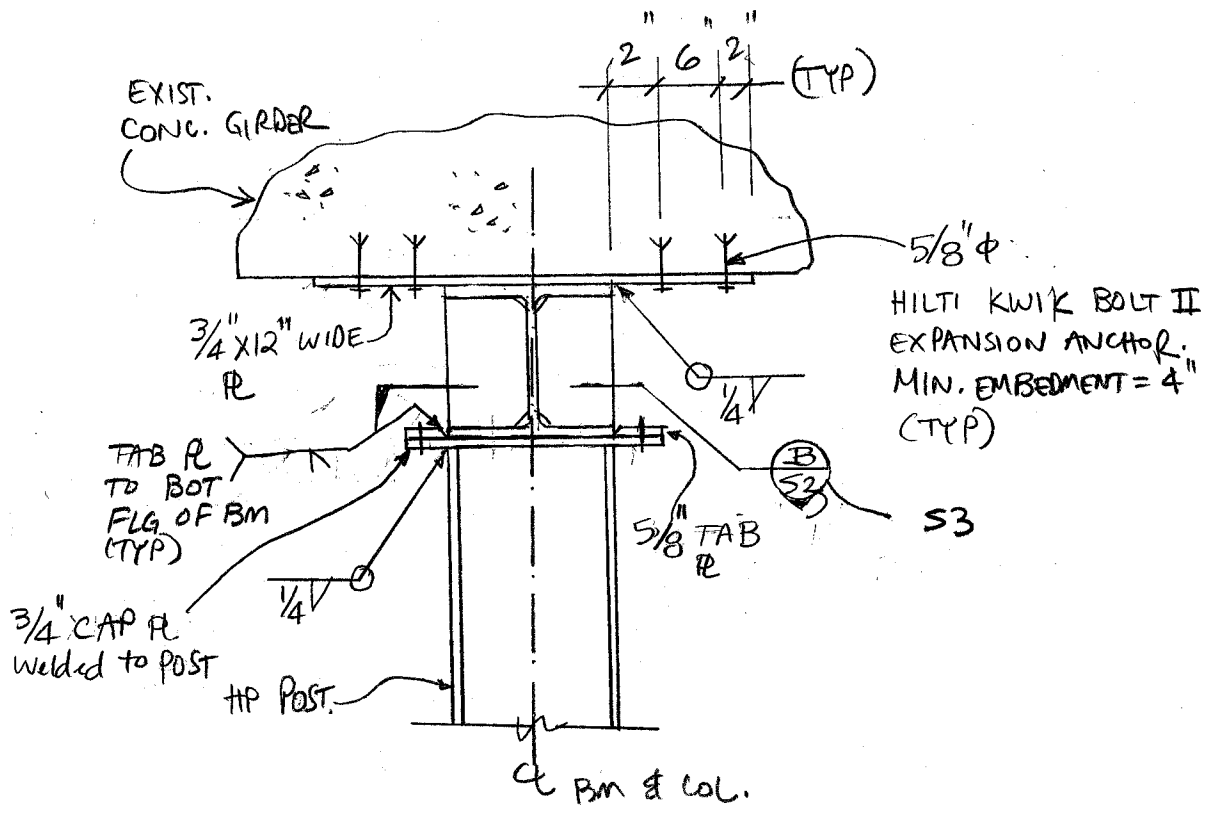 2" 6" 2" (TYP)
EXIST.
CONC. GIRDER
5/8" Φ
HILTI KWIK BOLT II
EXPANSION ANCHOR.
MIN. EMBEDMENT = 4"
(TYP)
3/4" X12" WIDE
PL
1/4
TAB PL
TO BOT
FLG OF BM
(TYP)
B
S2
S3
5/8" TAB
PL
1/4
3/4" CAP PL
Welded to POST
HP POST.
CL BM & COL.